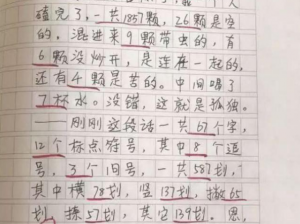 嗑完了,一共1857颗,26颗是空
的,混进来9颗带虫的,有
6颗没炒开,是连在一起的,
还有4颗是苦的。中间喝了
7杯水。没错,这就是孤独。
——刚刚这段话一共67个字,
12个标点符号,其中8个逗
号,3个句号,一共587划,
其中横78划,竖137划,撇65
划,捺57划,其它139划。恩,